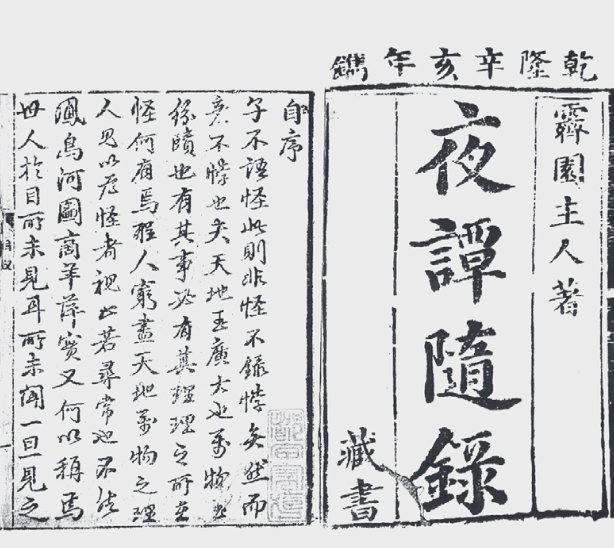 乾隆辛亥年鐫
霽園主人著
夜譚隨錄
藏書
自序
子不語怪此則非怪不錄悖矣然而
意不悖也夫天地至廣大也萬物至
紛賾也有其事必有其理理之所在
怪何有焉聖人窮盡天地萬物之理
人見以為怪者視之若尋常也不然
鳳鳥河圖商羊萍實又何以稱焉
世人於目所未見耳所未聞一旦見之